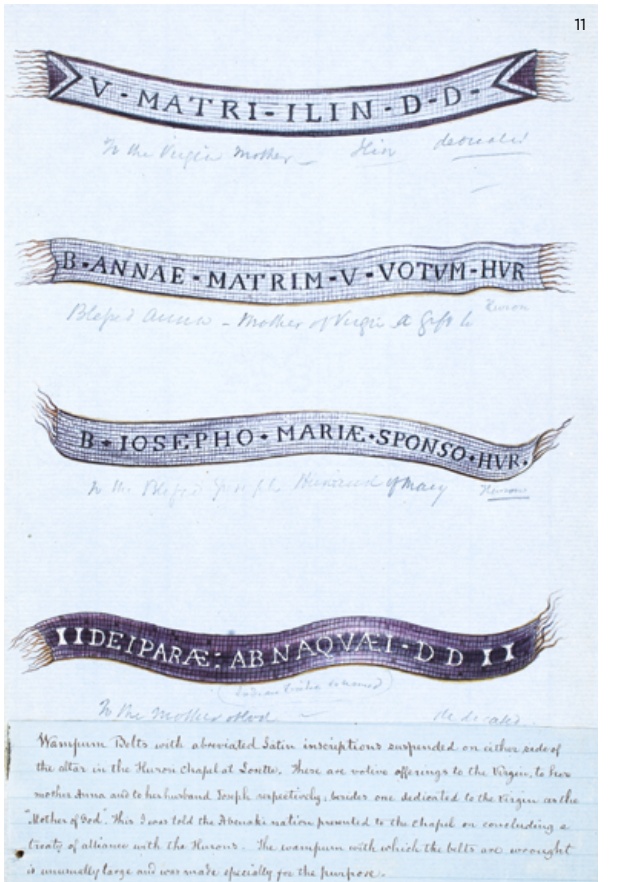 11
V - MATRI - ILIN - D - D -
To the Virgin Mother — Ilin dedicated
B - ANNAE - MATRIM - V - VOTVM - HVR
Blessed Anna - Mother of Virgin a gift Huron
B • IOSEPHO • MARIÆ • SPONSO • HVR •
To the Blessed Joseph Husband of Mary Huron
II DEIPARÆ : ABNAQVÆI • D D II
To the Mother of God — dedicated
Wampum Belts with abreviated Latin inscriptions suspended on either side of
the altar in the Huron Chapel at Lorette. These are votive offerings to the Virgin, to her
mother Anna and to her husband Joseph respectively; besides one dedicated to the Virgin as the
"Mother of God". This I was told the Abenaki nation presented to the Chapel on concluding a
treaty of alliance with the Hurons. The wampum with which the belts are wrought
is unusually large and was made specially for the purpose.